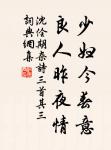 少妇今春意
良人昨夜情
沈佺期杂诗三首其三
词典网集